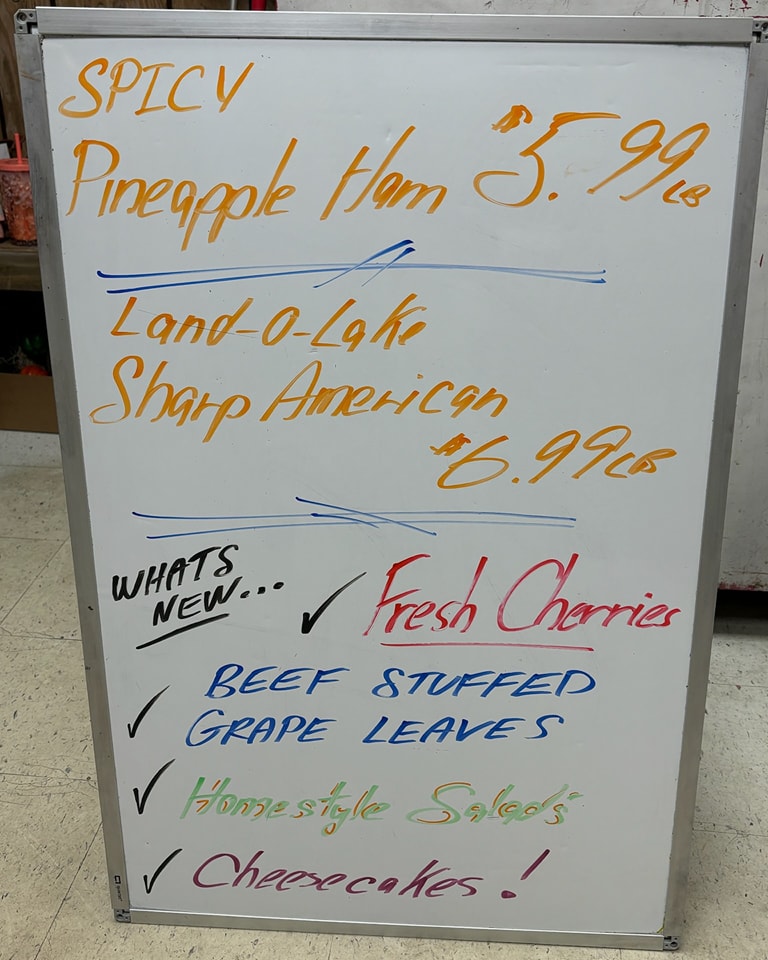 SPICY
Pineapple Ham $5.99 LB
Land-O-Lake
Sharp American
$6.99 LB
WHATS
NEW...
✓ Fresh Cherries
BEEF STUFFED
✓ GRAPE LEAVES
✓ Homestyle Salads
✓ Cheesecakes!